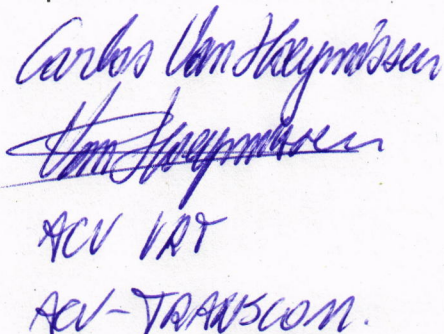 Carlos Van Hoeymissen
Van Hoeymissen
ACV VRT
ACV-TRANSCOM.